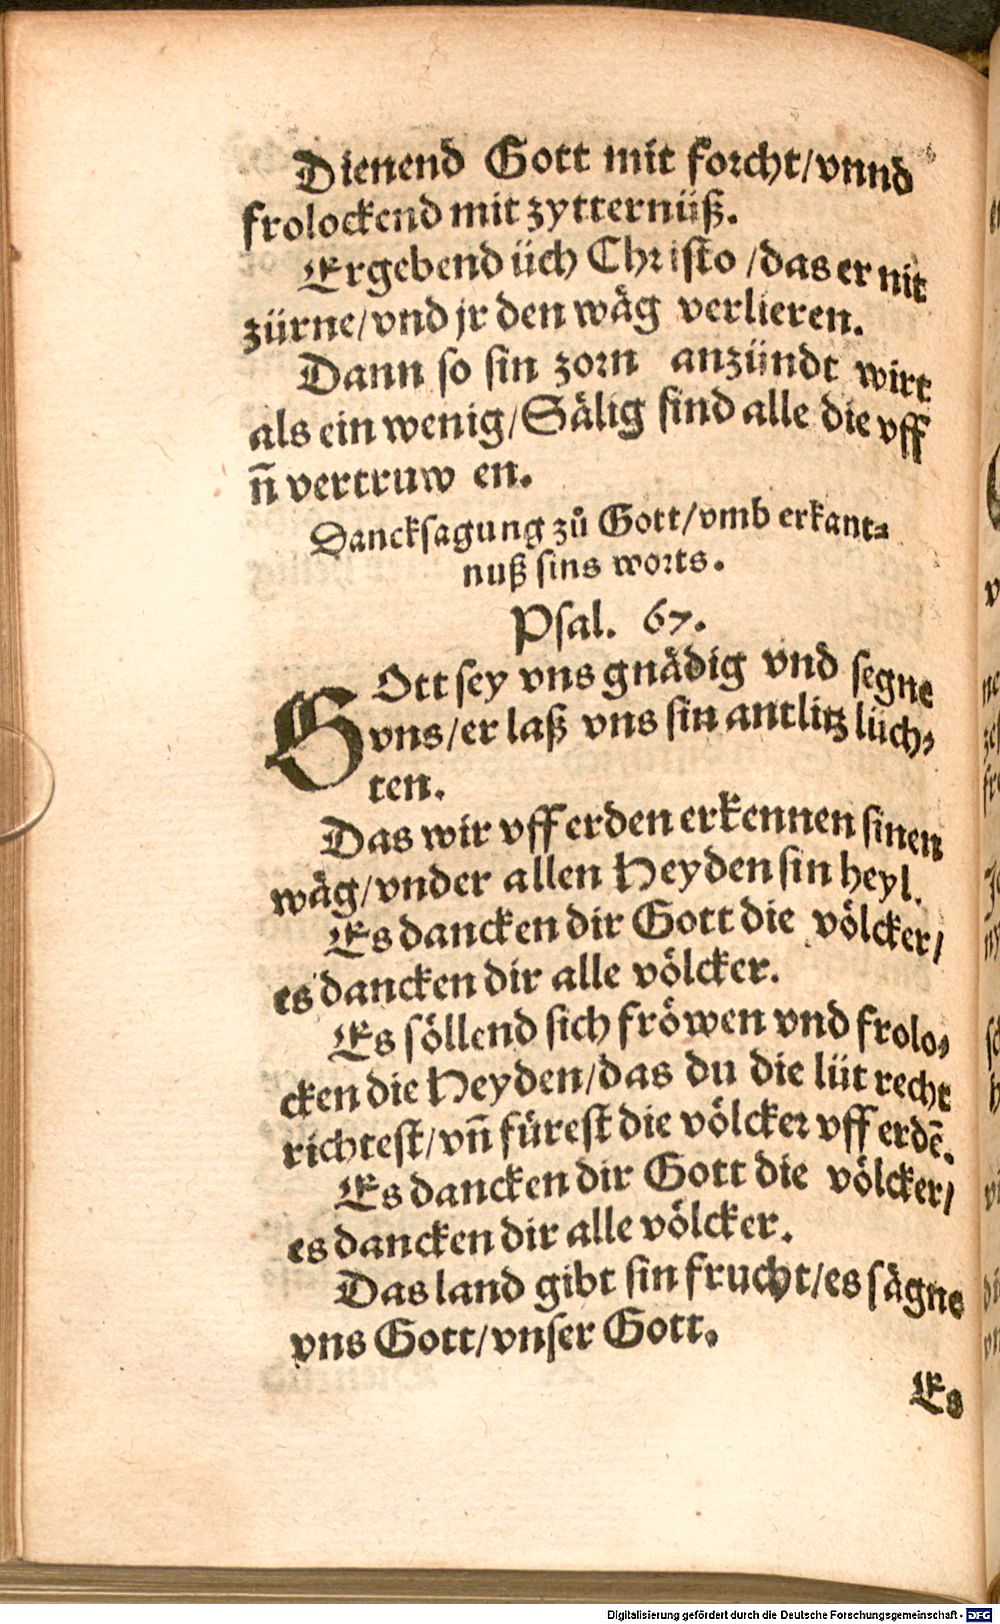 Dienend Gott mit forcht/vnnd
frolockend mit zytternüß.
Ergebend üch Christo/das er nit
zürne/vnd jr den wäg verlieren.
Dann so sin zorn anzündt wirt
als ein wenig/Sälig sind alle die vff
n̄ vertruw en.
Dancksagung zů Gott/vmb erkant⸗
nuß sins worts.
Psal. 67.
GOtt sey vns gnädig vnd segne
vns/er laß vns sin antlitz lüch⸗
ten.
Das wir vff erden erkennen sinen
wäg/vnder allen Heyden sin heyl.
Es dancken dir Gott die völcker/
es dancken dir alle völcker.
Es söllend sich fröwen vnd frolo⸗
cken die Heyden/das du die lüt recht
richtest/vn̄ fürest die völcker vff erdē.
Es dancken dir Gott die völcker/
es dancken dir alle völcker.
Das land gibt sin frucht/es sägne
vns Gott/vnser Gott.
Es
Digitalisierung gefördert durch die Deutsche Forschungsgemeinschaft - DFG